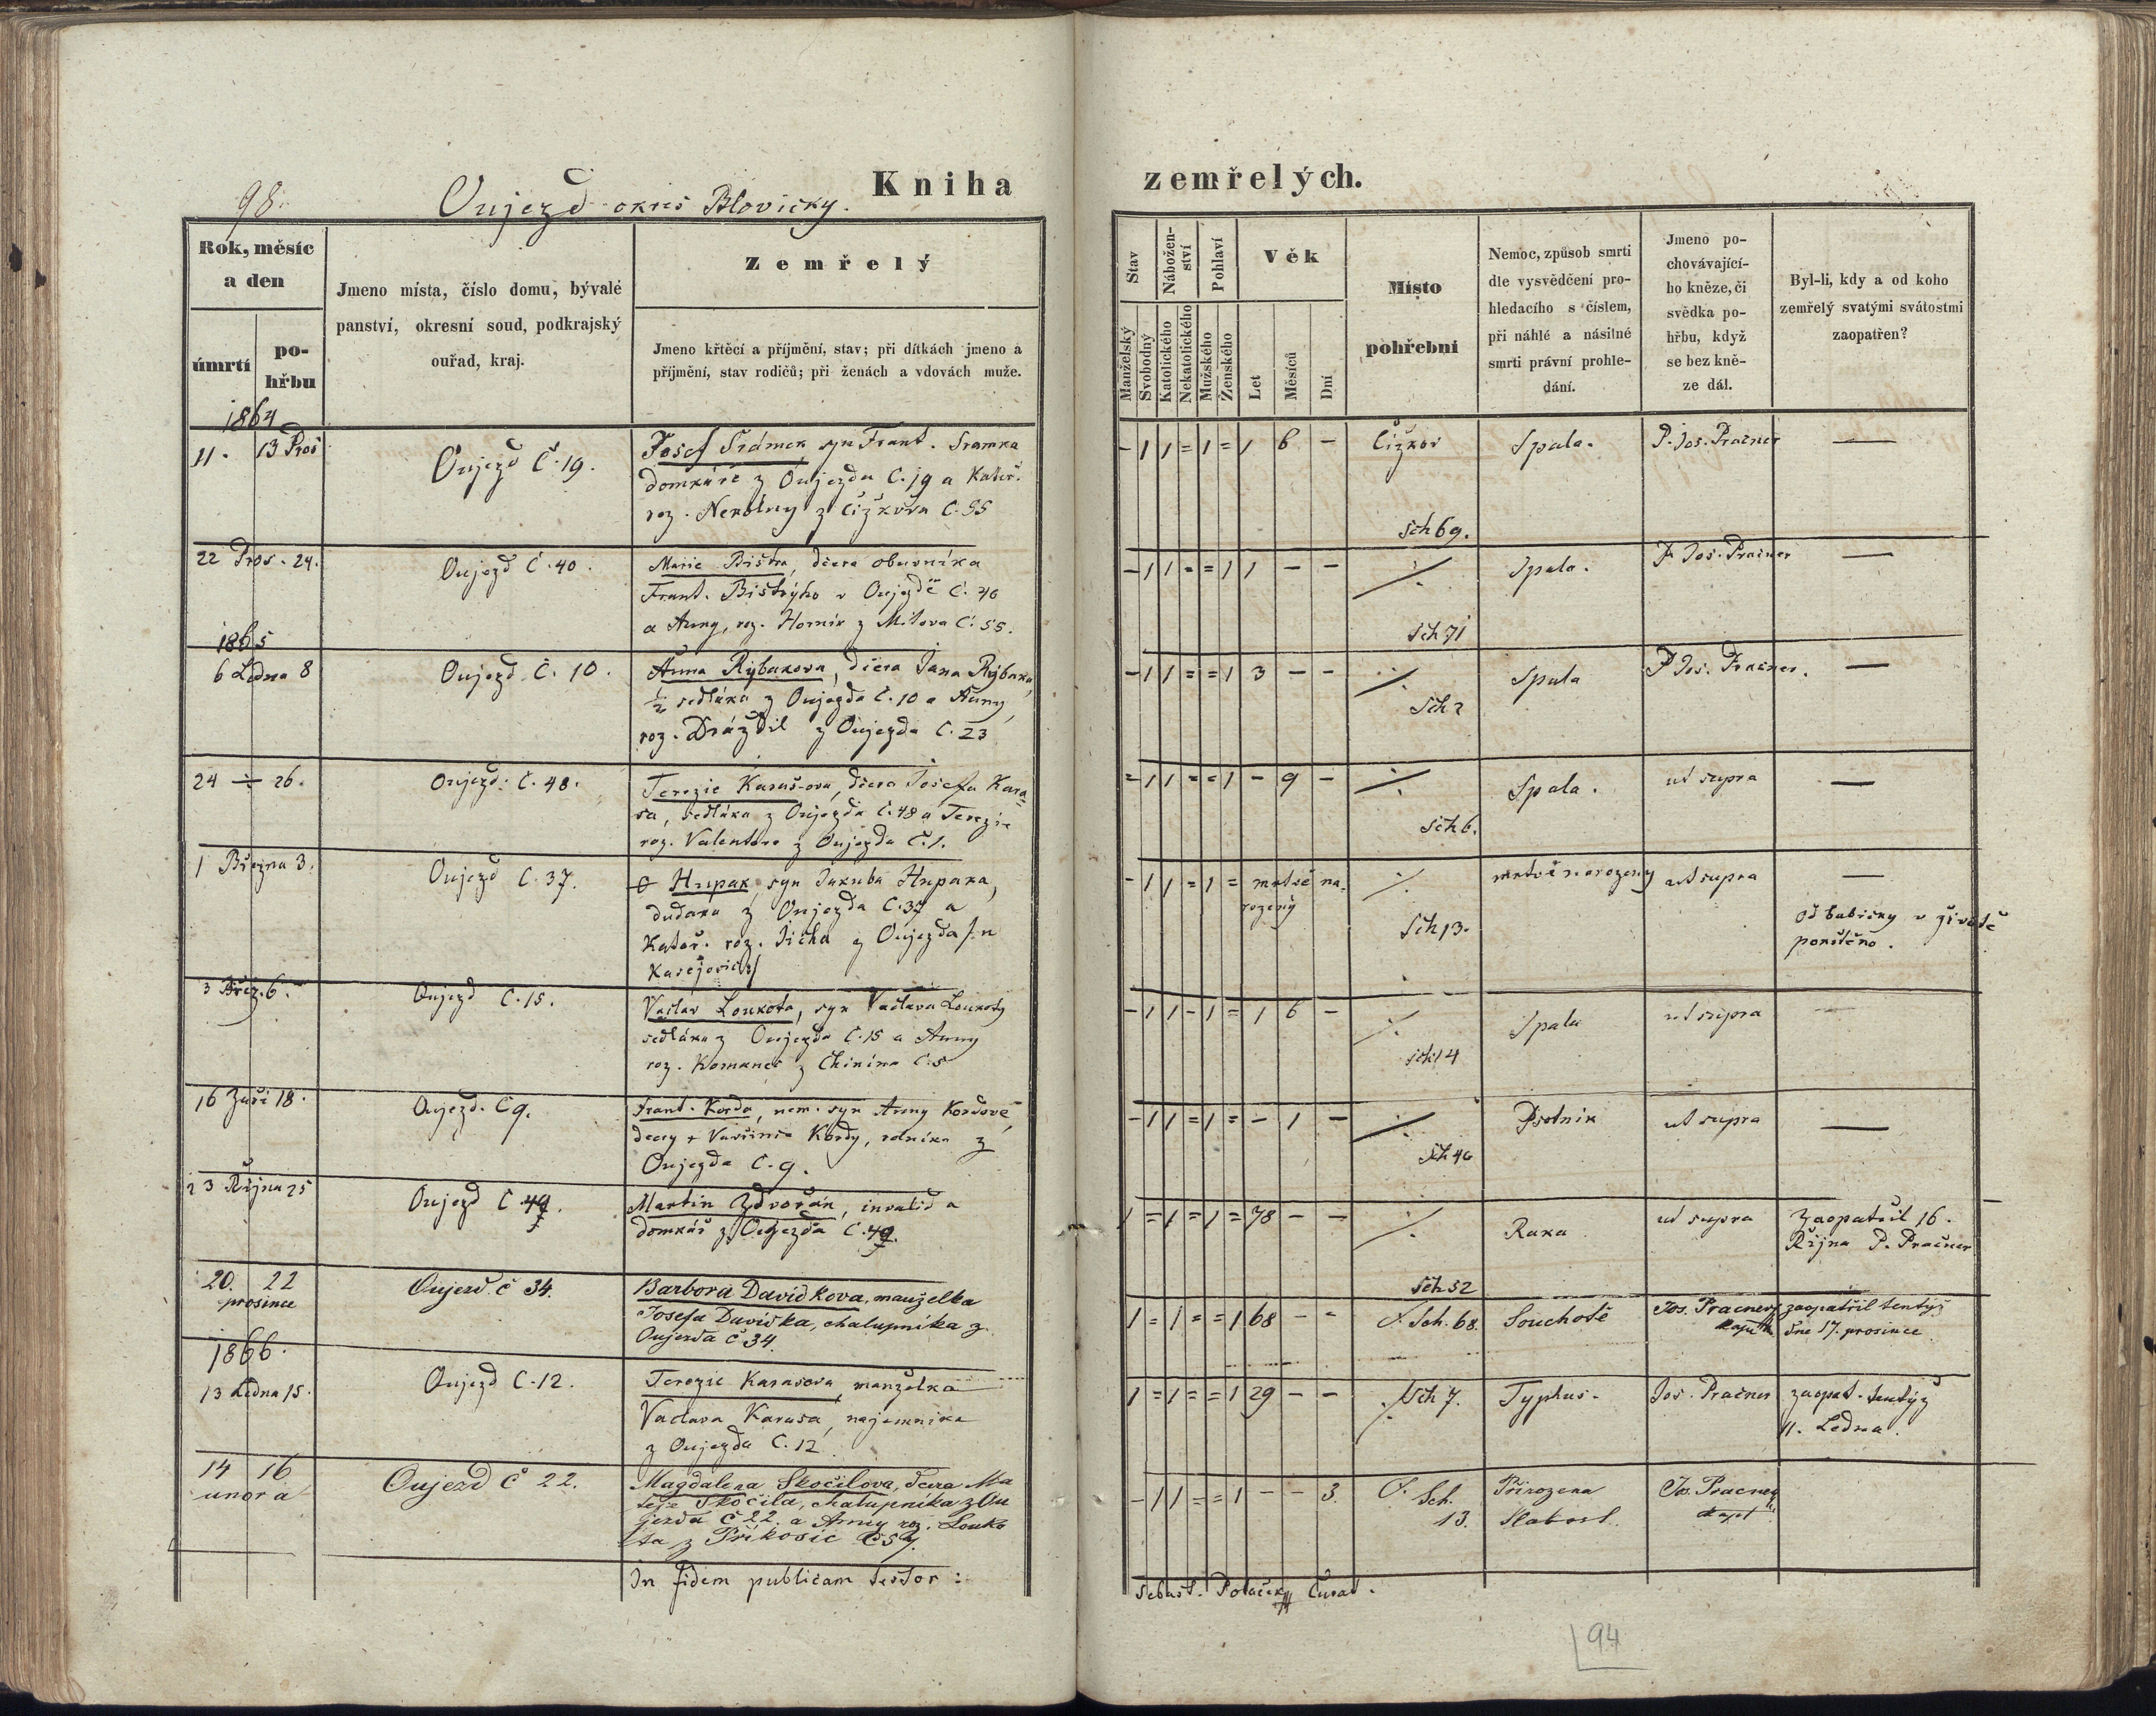 98.
Oujezd okres Blovický.
Kniha
zemřelých.
Rok, měsíc
a den
úmrtí
po-
hřbu
Jmeno místa, číslo domu, bývalé
panství, okresní soud, podkrajský
ouřad, kraj.
Zemřelý
Jmeno křtěcí a příjmění, stav; při dítkách jmeno a
příjmění, stav rodičů; při ženách a vdovách muže.
Stav
Nábožen-
ství
Pohlaví
Věk
Manželský
Svobodný
Katolického
Nekatolického
Mužského
Ženského
Let
Měsíců
Dní
Místo
pohřební
Nemoc, způsob smrti
dle vysvědčení pro-
hledacího s číslem,
při náhlé a násilné
smrti právní prohle-
dání.
Jmeno po-
chovávající-
ho kněze, či
svědka po-
hřbu, když
se bez kně-
ze dál.
Byl-li, kdy a od koho
zemřelý svatými svátostmi
zaopatřen?
1864
11. 13 Pros
Oujezd Č. 19.
Josef Šrámek, syn Frant. Šramka
domkáře z Oujezda Č. 19 a Kateř.
roz. z Čížkova Č. 55
- 1 1 = 1 = 1 6 -
Čížkov
Sch 69.
Spala.
P. Jos. Pračner
—
22 Pros. 24.
Oujezd Č. 40.
Marie Bistra, dcera obuvníka
Frant. Bistrýho v Oujezdě Č. 40
a Anny, roz. Hornír z Mítova Č. 55.
- 1 1 = = 1 1 - -
Sch 71
Spala.
P. Jos. Pračner
—
1865
6 Ledna 8
Oujezd Č. 10.
Anna Rybakova, dcera Jana Rybaka,
½ sedláka z Oujezda Č. 10 a Anny,
roz. Drázdil z Oujezda Č. 23
- 1 1 = = 1 3 - -
Sch 2
Spala
P. Jos. Pračner.
—
24 ÷ 26.
Oujezd: Č. 48.
Terezie Karasova, dcera Josefa Kara=
sa, sedláka z Oujezda Č. 48 a Terezie
roz. z Oujezda Č. 1.
- 1 1 = = 1 - 9 -
Sch 6.
Spala.
ut supra
—
1 Března 3.
Oujezd Č. 37.
Hupak, syn Jakuba Hupaka,
dudaka z Oujezda Č. 37 a
Kateř. roz. Jícha z Oujezda /: u
Kasejovic :/
- 1 1 = 1 = mrtvě na-
rozený
Sch 13.
mrtvě narozený
ut supra
—
od babičky v životě
pokřtěno.
3 Břez. 6.
Oujezd Č. 15.
Vaclav Loukota, syn Vaclava Loukoty
sedláka z Oujezda Č. 15 a Anny
roz. z Chinína Č. 5
- 1 1 - 1 = 1 6 -
Sch 14
Spala
ut supra
—
16 Září 18.
Oujezd. Č 9.
Frant. Korda, nem. syn Anny Kordové,
dcery Kordy, rolníka z
Oujezda Č. 9.
- 1 1 = 1 = - 1 -
Sch 40
Psotník
ut supra
—
23 Října 25
Oujezd Č 49.
Martin Zdvořán, invalid a
domkář z Oujezda Č. 49.
1 = 1 = 1 = 78 - -
Sch 52
Raka
ut supra
Zaopatřil 16.
Října P. Pračner
20. 22
prosince
Oujezd. č 34.
Barbora Davidkova, manželka
Josefa Davidka, chalupníka z
Oujezda č 34.
1 = 1 = = 1 68 - -
Sch. 68.
Souchotě
Jos. Pracner,
kapl
zaopatřil tentýž
dne 17. prosince
1866.
13 Ledna 15.
Oujezd Č. 12.
Terezie Karasova, manželka
Vaclava Karasa, najemnika
z Oujezda Č. 12
1 = 1 = = 1 29 - -
Sch 7.
Typhus.
Jos. Pračner
zaopat. tentýž
11. Ledna.
14 16
unora
Oujezd č 22.
Magdalena Skočilova, dcera Ma
teje Skočila, chalupníka z Ou
jezda č 22. a Anny roz. Louko
ta z Příkosic
- 1 1 = = 1 - - 3.
Sch.
13.
Přirozena
slabost.
Jos. Pracner,
kapl
In fidem publicam testor:
Sebast. Polaček Curat.
94